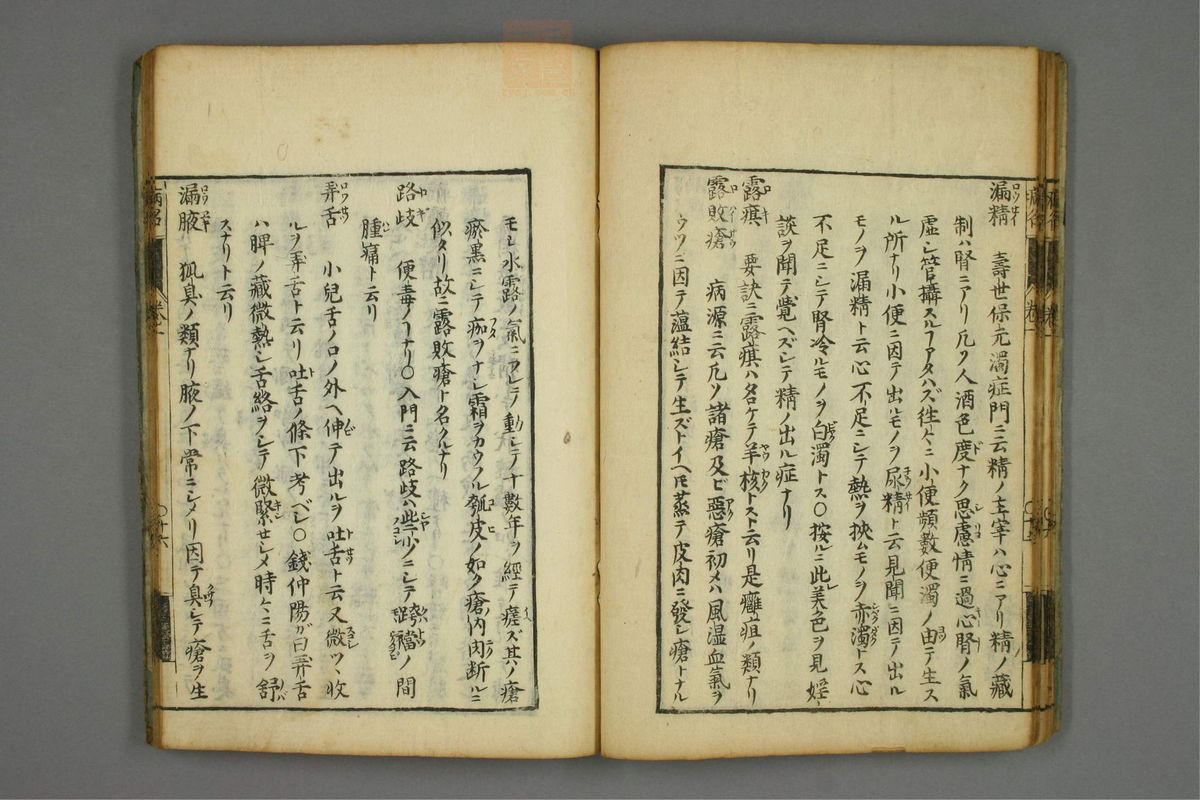 漏精　壽世保元濁症門ニ云精ノ主宰ハ心ニアリ精ノ藏
制ハ腎ニアリ凡ソ人酒色度ナク思慮情ニ過心腎ノ氣
虚シ管攝スルヿアタハズ徃々ニ小便頻數便濁ノ由テ生ス
ル所ナリ小便ニ因テ出ルモノヲ尿精ト云見聞ニ因テ出ル
モノヲ漏精ト云心不足ニシテ熱ヲ挾ムモノヲ赤濁トス心
不足ニシテ腎冷ルモノヲ白濁トス○按ルニ此レ美色ヲ見婬
談ヲ聞テ覺ヘズシテ精ノ出ル症ナリ
露㾵　要訣ニ露㾵ハタ名ケテ羊核トスト云リ是癰疽ノ類ナリ
露敗瘡　病源ニ云凡ソ諸瘡及ビ惡瘡初メハ風湿血氣ヲ
ウツニ因テ蕴結シテ生ズトイヘ𪜈蒸テ皮肉ニ發シ瘡トナル
モシ水露ノ氣ニフレテ動シテ十數年ヲ經テ瘥ズ其ノ瘡
瘀黒ニシテ痂ヲナシ霜ヲカウムル瓠皮ノ如ク瘡内肉断ルニ
似タリ故ニ露敗瘡ト名クルナリ
路歧　便毒ノヿナリ○入門ニ云路歧ハ此レ小ノニシテ跨襠ノ間
腫痛ト云リ
弄舌　小兒舌ノ口ノ外ヘ伸テ出ルヲ吐舌ト云又微ツヽ收
ルヲ弄舌ト云リ吐舌ノ條下考ベシ○錢仲陽ガ曰弄舌
ハ脾ノ藏微熱シ舌絡ヲシテ微緊セシメ時々ニ舌ヲ舒
スナリト云リ
漏腋　狐臭ノ類ナリ腋ノ下常ニシメリ因テ臭シテ瘡ヲ生